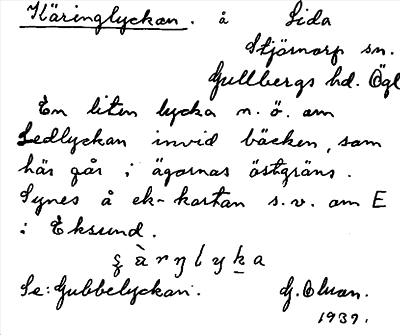 Käringlyckan. å Lida
Stjärnorp sn.
Gullbergs hd. Ögl
En liten lycka n.ö. om
Ledlyckan invid bäcken, som
här går i ägornas östgräns.
Synes å ek-kartan s.v. om E
i Eksund.
Se: Gubbelyckan.
1939.